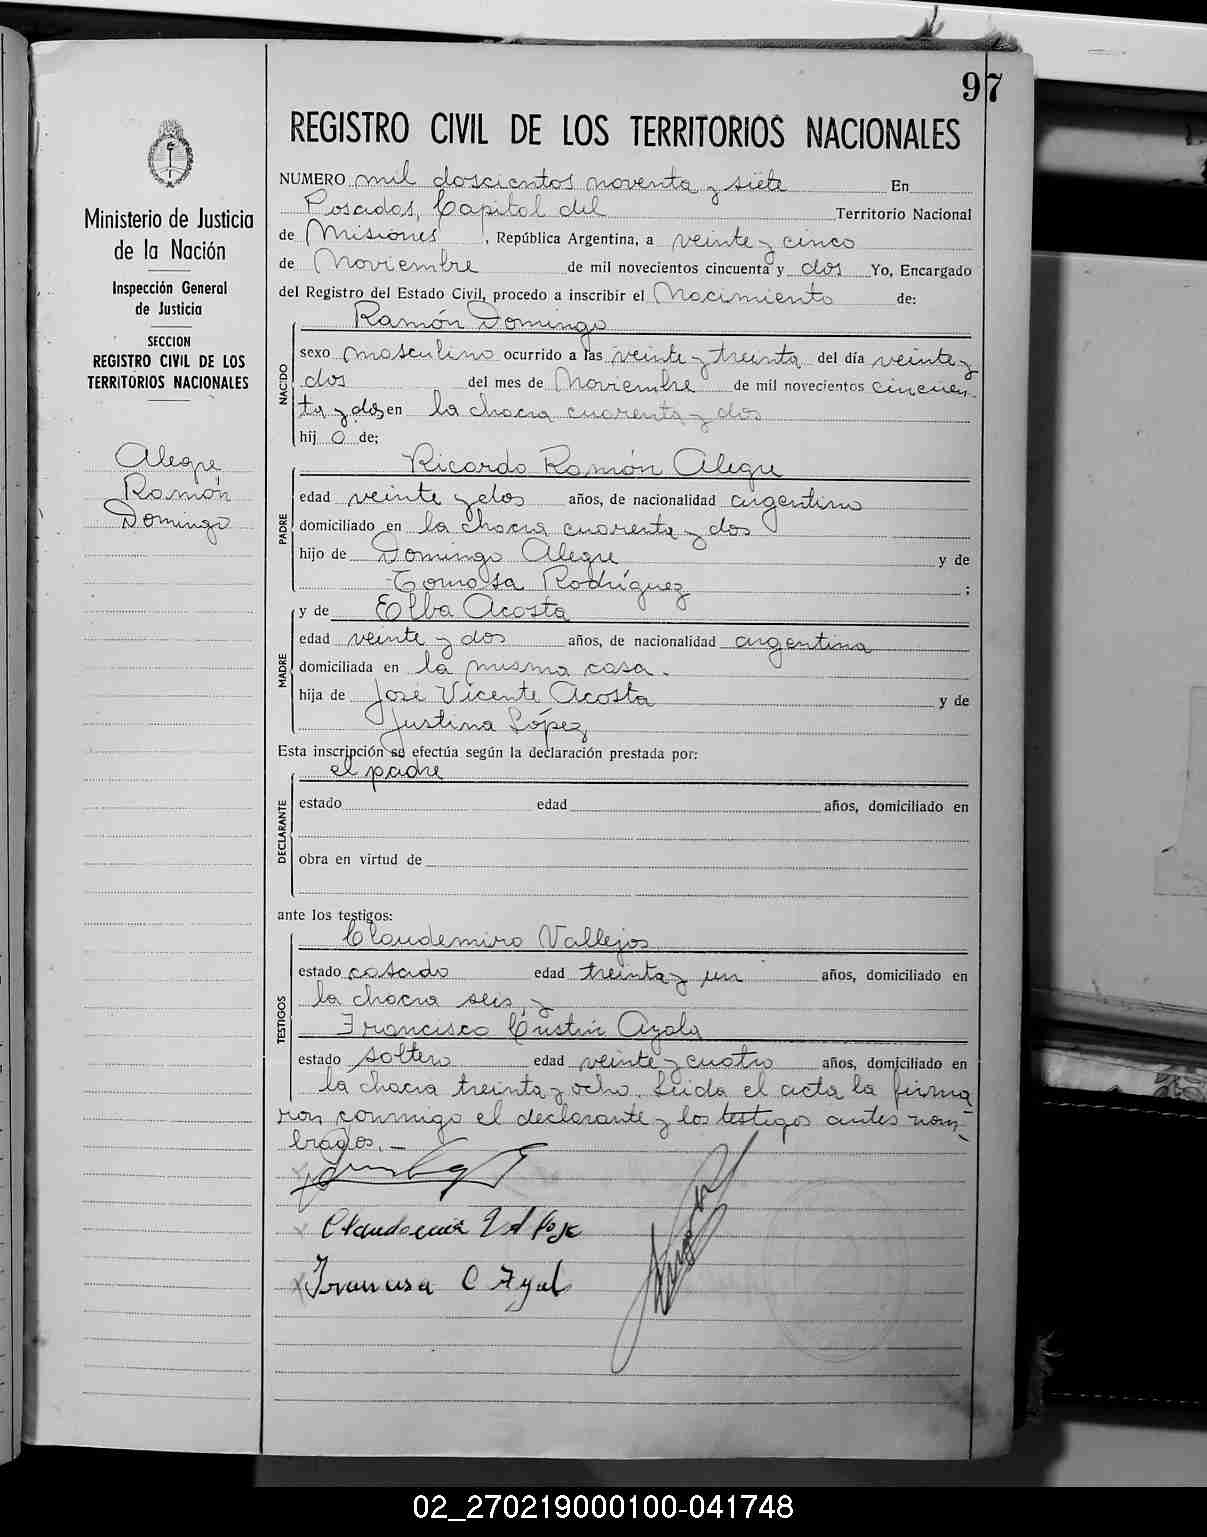 97
REGISTRO CIVIL DE LOS TERRITORIOS NACIONALES
Ministerio de Justicia
de la Nación
Inspección General
de Justicia
SECCION
REGISTRO CIVIL DE LOS
TERRITORIOS NACIONALES
Alegre
Ramón
Domingo
NUMERO mil doscientos noventa y siete En
Posadas, Capital del Territorio Nacional
de Misiones, República Argentina, a veinte y cinco
de Noviembre de mil novecientos cincuenta y dos Yo, Encargado
del Registro del Estado Civil, procedo a inscribir el Nacimiento de:
Ramón Domingo
NACIDO
sexo masculino ocurrido a las veinte y treinta del día veinte y
dos del mes de Noviembre de mil novecientos cincuen-
ta y dos en la chacra cuarenta y dos
hij o de:
Ricardo Ramón Alegre
PADRE
edad veinte y dos años, de nacionalidad argentino
domiciliado en la chacra cuarenta y dos
hijo de Domingo Alegre y de
Tomasa Rodríguez ;
y de Elba Acosta
MADRE
edad veinte y dos años, de nacionalidad argentina
domiciliada en la misma casa.
hija de José Vicente Acosta y de
Justina López
Esta inscripción se efectúa según la declaración prestada por:
el padre
DECLARANTE
estado edad años, domiciliado en
obra en virtud de
ante los testigos:
Claudemiro Vallejos
TESTIGOS
estado casado edad treinta y un años, domiciliado en
la chacra seis, y
Francisco Ayala
estado soltero edad veinte y cuatro años, domiciliado en
la chacra treinta y ocho. Leida el acta la firma-
ron conmigo el declarante y los testigos antes nom-
brados. —
Francisco C Ayala
02_270219000100-041748